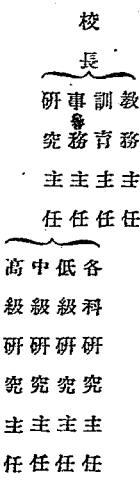 校長
教務主任
訓育主任
事務主任
研究主任
各科研究主任
低級研究主任
中級研究主任
高級研究主任